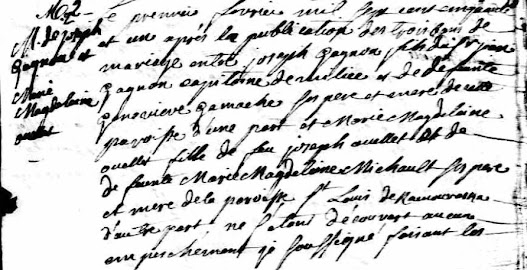 M. de joseph
gagnon et
Marie
Magdelaine
ouellet
Le premier fevrier mil sept cent cinquante
et un après la publication des trois bans de
mariage entre joseph gagnon fils de Sr jean
gagnon capitaine de milice et de défunte
genevieve gamache ses pere et mere de cette
paroisse d'une part et Marie Magdelaine
ouellet fille de feu joseph ouellet et de
defunte Marie Magdelaine Michault ses pere
et mere de la paroisse St Louis de Kamouraska
d'autre part, ne s'etant découvert aucun
empeschement je soussigné faisant les